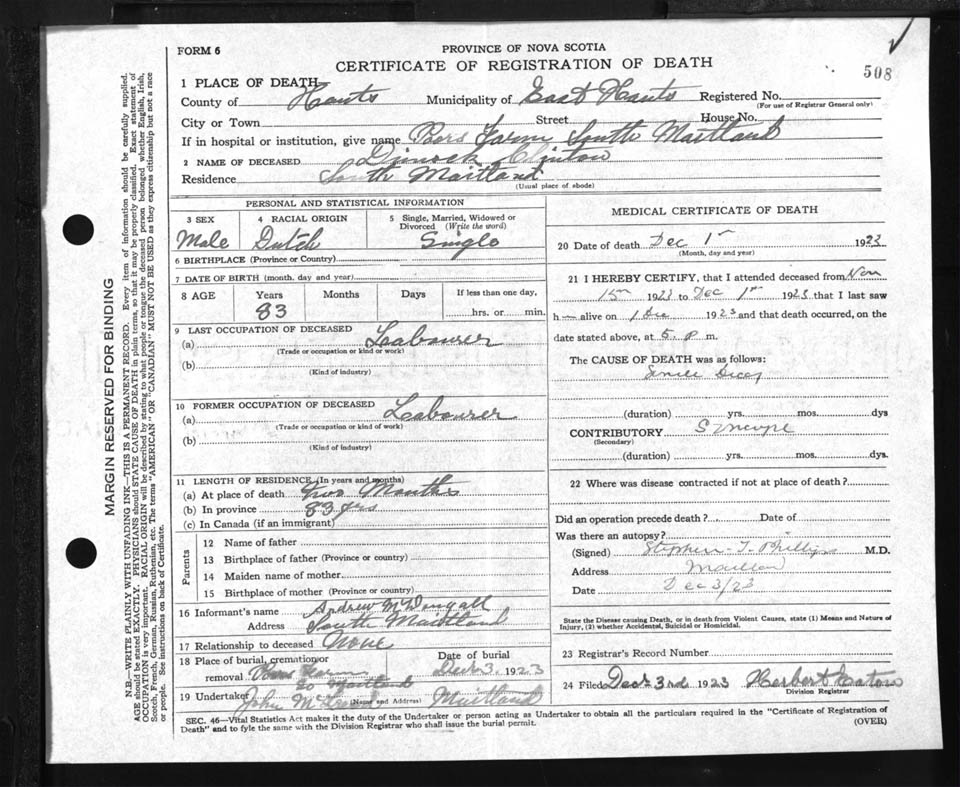 FORM 6
PROVINCE OF NOVA SCOTIA
CERTIFICATE OF REGISTRATION OF DEATH
508
1 PLACE OF DEATH
County of Hants Municipality of East Hants Registered No.
(For use of Registrar General only)
City or Town Street House No.
If in hospital or institution, give name Poors Farm South Maitland
2 NAME OF DECEASED Dimock Clinton
Residence South Maitland
(Usual place of abode)
PERSONAL AND STATISTICAL INFORMATION
3 SEX 4 RACIAL ORIGIN 5 Single, Married, Widowed or Divorced (Write the word)
Male Dutch Single
6 BIRTHPLACE (Province or Country)
7 DATE OF BIRTH (month, day and year)
8 AGE Years Months Days If less than one day,
83 hrs. or min.
9 LAST OCCUPATION OF DECEASED
(a) Labourer
(Trade or occupation or kind or work)
(b)
(Kind of industry)
10 FORMER OCCUPATION OF DECEASED
(a) Labourer
(Trade or occupation or kind of work)
(b)
(Kind of industry)
11 LENGTH OF RESIDENCE (In years and months)
(a) At place of death Two Months
(b) In province 83 yrs
(c) In Canada (if an immigrant)
Parents
12 Name of father
13 Birthplace of father (Province or country)
14 Maiden name of mother
15 Birthplace of mother (Province or country)
16 Informant's name Andrew McDougall
Address South Maitland
17 Relationship to deceased None
18 Place of burial, cremation or removal Poors Farm So Maitland
Date of burial Dec 3. 1923
19 Undertaker John Maitland
(Name and Address)
MEDICAL CERTIFICATE OF DEATH
20 Date of death Dec 1st 1923
(Month, day and year)
21 I HEREBY CERTIFY, that I attended deceased from Nov
15th 1923 to Dec 1st 1923 that I last saw
h m alive on 1 Dec 1923 and that death occurred, on the
date stated above, at 5. p m.
The CAUSE OF DEATH was as follows:
Senile Decay
(duration) yrs. mos. dys
CONTRIBUTORY Syncope
(Secondary)
(duration) yrs. mos. dys.
22 Where was disease contracted if not at place of death?
Did an operation precede death? Date of
Was there an autopsy?
(Signed) Stephen T. Phillips M.D.
Address Maitland
Date Dec 3/23
State the Disease causing Death, or in death from Violent Causes, state (1) Means and Nature of
Injury, (2) whether Accidental, Suicidal or Homicidal.
23 Registrar's Record Number
24 Filed Dec 3rd 1923 Herbert Eaton
Division Registrar
SEC. 46—Vital Statistics Act makes it the duty of the Undertaker or person acting as Undertaker to obtain all the particulars required in the "Certificate of Registration of
Death" and to fyle the same with the Division Registrar who shall issue the burial permit.
(OVER)
MARGIN RESERVED FOR BINDING
N.B.—WRITE PLAINLY WITH UNFADING INK—THIS IS A PERMANENT RECORD. Every item of information should be carefully supplied.
AGE should be stated EXACTLY. PHYSICIANS should STATE CAUSE OF DEATH in plain terms, so that it may be properly classified. Exact statement of
OCCUPATION is very important. RACIAL ORIGIN will be described by stating to what people or tongue the deceased person belonged whether English, Irish,
Scotch, French, German, Russian, Ruthenian, etc. The terms "AMERICAN" OR "CANADIAN" MUST NOT BE USED as they express citizenship but not a race
or people. See instructions on back of Certificate.